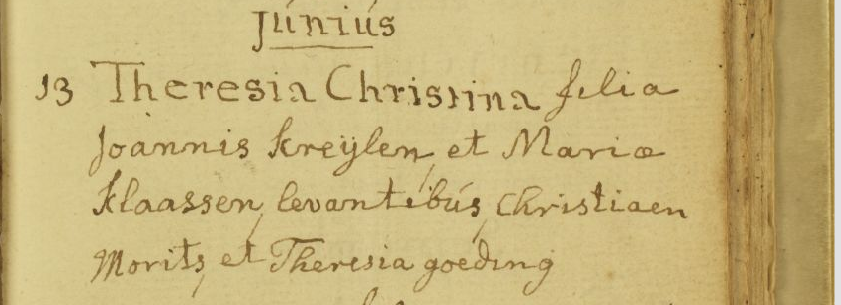 Júniús
13 Theresia Christina filia
Joànnis Kreÿlen, et Mariæ
Klaassen, levantibús, Christiaen
Morits, et Theresia goeding